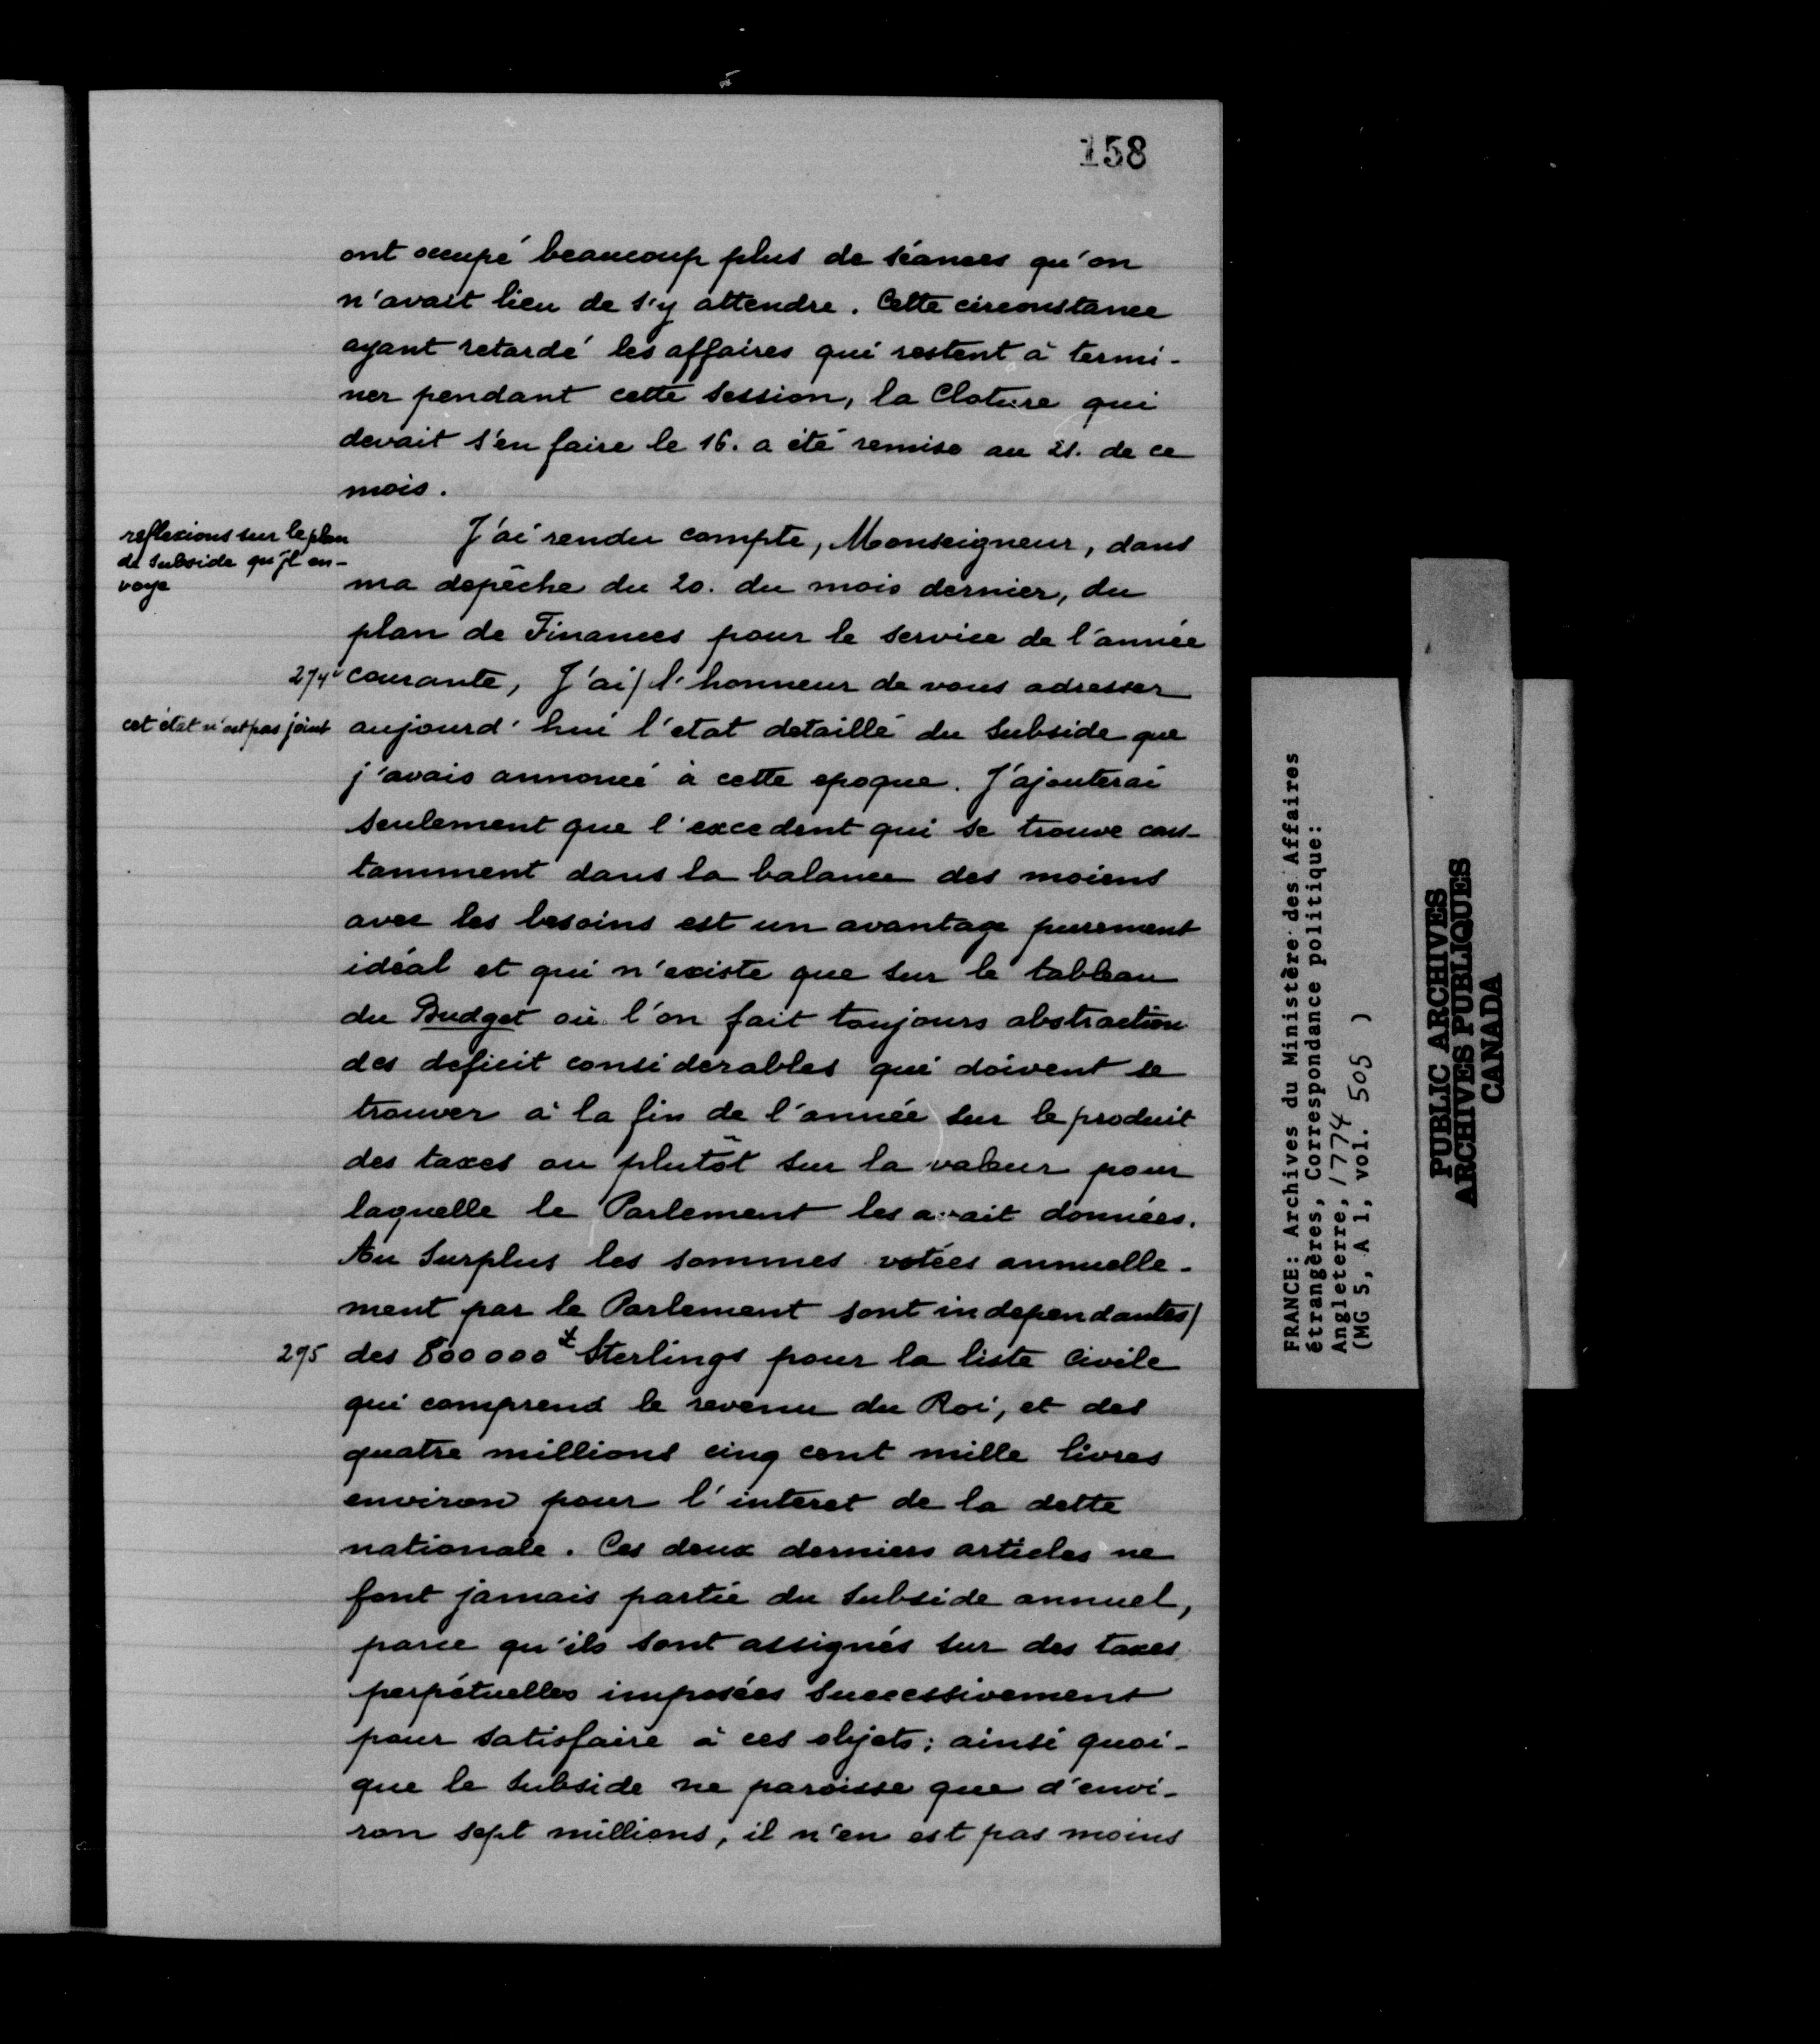 158
ont occupé beaucoup plus de séances qu'on
n'avait lieu de s'y attendre. Cette circonstance
ayant retardé les affaires qui restent à termi-
ner pendant cette session, la Cloture qui
devait s'en faire le 16. a été remise au 21. de ce
mois.
reflexions sur le plan
de subside qu'il en-
voye
J'ai rendu compte, Monseigneur, dans
ma depêche du 20. du mois dernier, du
plan de Finances pour le service de l'année
274v courante, J'ai/ l'honneur de vous adresser
cet état n'est pas joint
aujourd'hui l'etat detaillé du subside que
j'avais annoncé à cette epoque. J'ajouterai
seulement que l'excedent qui se trouve cons-
tamment dans la balance des moiens
avec les besoins est un avantage purement
idéal et qui n'existe que sur le tableau
du Budget où l'on fait toujours abstraction
des deficit considerables qui doivent se
trouver à la fin de l'année sur le produit
des taxes ou plutôt sur la valeur pour
laquelle le Parlement les avait données.
Au surplus les sommes votées annuelle-
ment par le Parlement sont independantes/
295 des 800000 # Sterlings pour la liste civile
qui comprend le revenu du Roi, et des
quatre millions cinq cent mille livres
environ pour l'interet de la dette
nationale. Ces deux derniers articles ne
font jamais partie du subside annuel,
parce qu'ils sont assignés sur des taxes
perpétuelles imposées successivement
pour satisfaire à ces objets; ainsi quoi-
que le subside ne paroisse que d'envi-
ron sept millions, il n'en est pas moins
FRANCE: Archives du Ministère des Affaires
étrangères, Correspondance politique:
Angleterre, 1774
(MG 5, A 1, vol. 505 )
PUBLIC ARCHIVES
ARCHIVES PUBLIQUES
CANADA